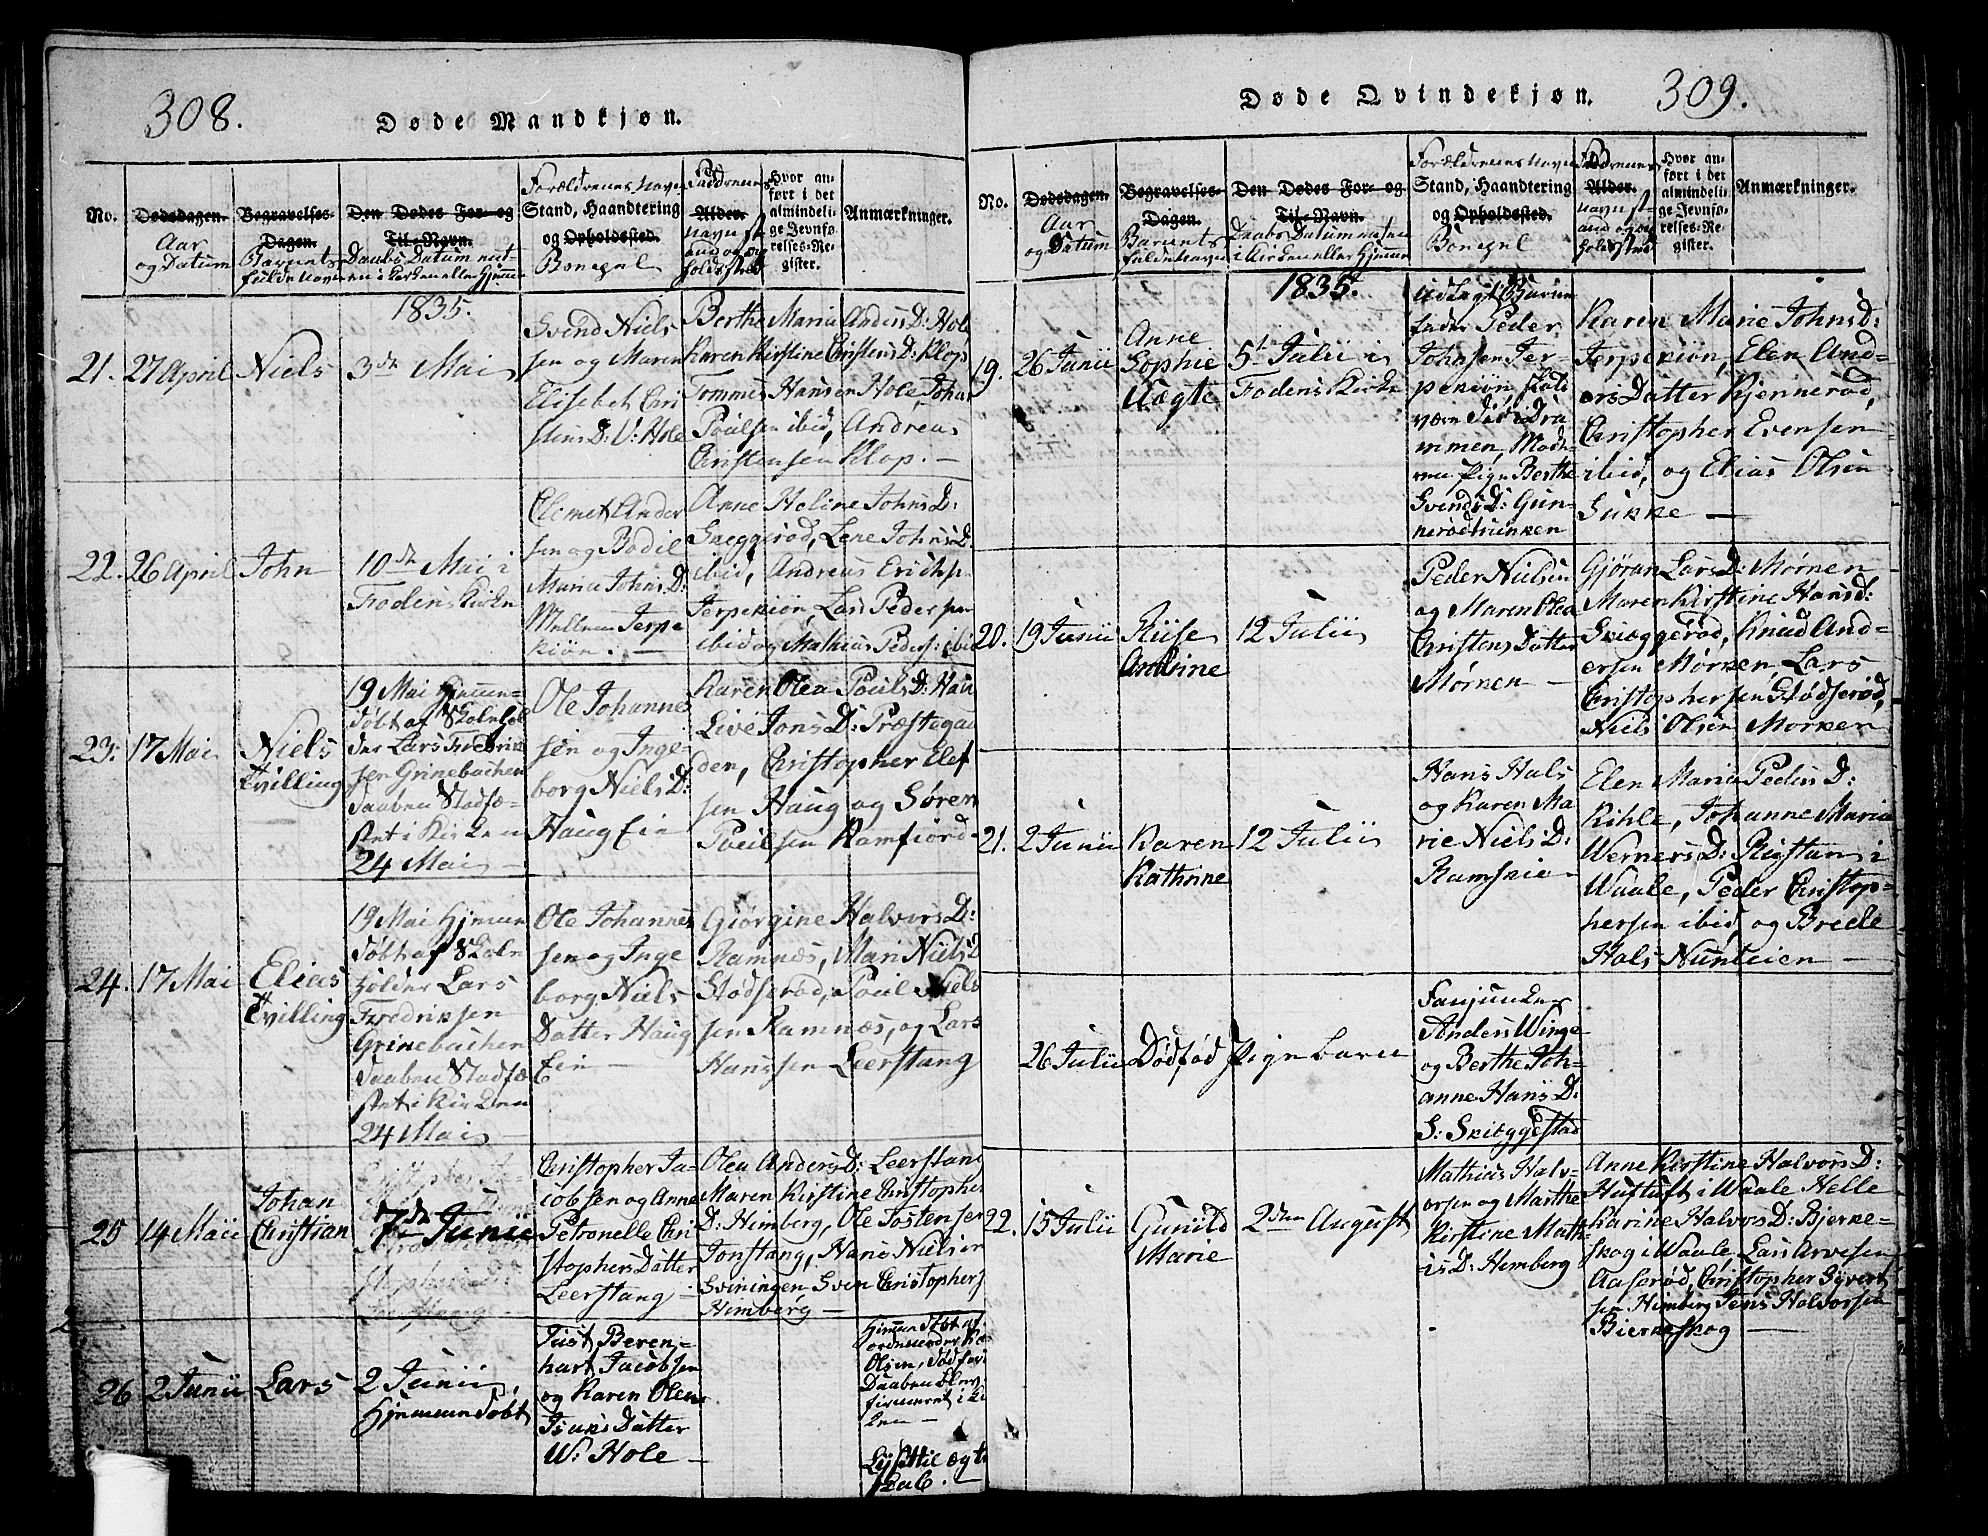 308.
Døde Mandkjøn.
No.
Dødsdagen.
Aar
og Datum
Begravelses-
Dagen.
Barnets
fulde Navn
Den Dødes For- og
Til-Navn.
Daabs Datum
Forældrenes Navn
Stand, Haandtering
og Opholdssted.
Faddrenes
Alder.
Navn
Hvor an-
ført i det
almindeli-
ge Jevnfø-
relses-Re-
gister.
Anmærkninger.
1835.
21.
27 April
Niels
3de Mai
Svend Niels
sen og Maren
Elisebet Cri
stens D: V: Hole
Berthe Maria Anders D: Hole
Karen Kirstine Cristens D: Klop
Tommes Hansen Hole Johan
Poulsen ibid, Andreas
Christensen Klop. —
22.
26 April
John
10de Mai i
Fodens Kirke
Clemet Ander
sen og Bodil
Maria Johns D:
Mellem Jerpe
kiøn. —
Anne Heline Johns D:
Sneggerød, Lene Johns D:
ibid, Andreas Erichsen
Jerpekiøn, Lars Pedersen
ibid og Mathias Peders: ibid
23.
17 Mai
Niels
Tvilling
19 Mai Hjemme-
døbt af Skolehol
der Lars Fredrik
sen Grinebachen
Daaben Stadfæ-
stet i Kirken
24 Mai —
Ole Johannes
sen og Inge-
borg Niels D:
Haug Eie
Karen Olea Pouls D: Haug
Live Jons D: Præstegaar
den, Christopher Elef
sen Haug og Søren
Poulsen Ramfiord
24.
17 Mai
Elias
Tvilling
19 Mai Hjemme
døbt af Skole
holder Lars
Fredriksen
Grinebachen
Daaben Stadfæ
stet i Kirken
24 Mai —
Ole Johannes
sen og Inge
borg Niels
Datter Haug
Eie —
Giørgine Halvors D:
Ramnæs, Mari Niels D
Stødserød, Poul Niels
sen Ramnæs, og Lars
Hanssen Leerstang
25
14 Maii
Johan
Christian
7de Junii
Christopher Ja-
cobsen og Anne
Petronelle Cri
stophers Datter
Leerstang —
Olea Anders D: Leerstang
Maren Kirstine Cristopher
D: Himberg, Ole Tostensen
Jonstang, Hans Nielsen
Sveningen Sven Cristophers
Himberg —
26
2 Junii
Lars
2 Junii,
Hjemmedøbt
Just Beren-
hart Jacobsen
og Karen Olea
Isaks Datter
W: Hole —
Hjemmedøbt af
Olsen, død før
Daaben blev
firmeret i Kir
ken —
ægte
skab. —
309.
Døde Qvindekjøn.
No.
Dødsdagen.
Aar
og Datum
Begravelses-
Dagen.
Barnets
fulde Navn
Den Dødes For- og
Til-Navn.
Daabs Datum
i Kirken eller Hjemme
Forældrenes Navn
Stand, Haandtering
og Opholdssted.
Faddrenes
Alder.
Navn
Hvor an-
ført i det
almindeli-
ge Jevnfø-
relses-Re-
gister.
Anmærkninger.
1835.
19.
26 Junii
Anne
Sophie
Uægte
5t Julii i
Fodens Kirke
Udlagt Barne
fader Peder
Johnsen Jer-
pekiøn skal
være død i Dra
mmen, Mode-
ren Pige Berthe
Svends D: Gun-
nerød
Karen Marie Johns D:
Jerpekiøn, Elen And-
ors Datter Kjennerød,
Cristopher Evensen
ibid, og Elias Olsen
Sukke —
20.
19 Junii
Andrine
12 Julii
Peder Nielsen
og Maren Olea
Cristens Datter
Mørken —
Gjøran Lars D: Mørken
Maren Kirstine Hans D:
Skieggerød, Knud And-
ersen Mørken, Lars
Cristophersen Stødserød,
Niels Olsen Mørken
21.
2 Junii
Karen
Kathrine
12 Julii
Hans Hals
og Karen Ma
rie Niels D:
Ramskie
Elen Maria Peders D:
Kihle, Johanne Maria
Werners D: Rigstan i
Waale, Peder Cristop-
hersen ibid, og Brede
Hals Nunteien —
26 Julii
Dødfød Pige barn
Fanjunker
Anders Winge
og Berthe Joh-
anne Hans D:
S: Skieggestad
22.
15 Julii
Gunild
Marie
2den August
Mathias Halv-
orsen og Marthe
Kirstine Math-
is D: Hemberg
Anne Kirstine Halvors D:
Huftuft i Waale Helle
Karine Halvors D: Bjerke-
skog i Waale, Lars Arvesen
Aaserød, Christopher Syvert
sen Himberg Jens Halvorsen
Bierkeskog —